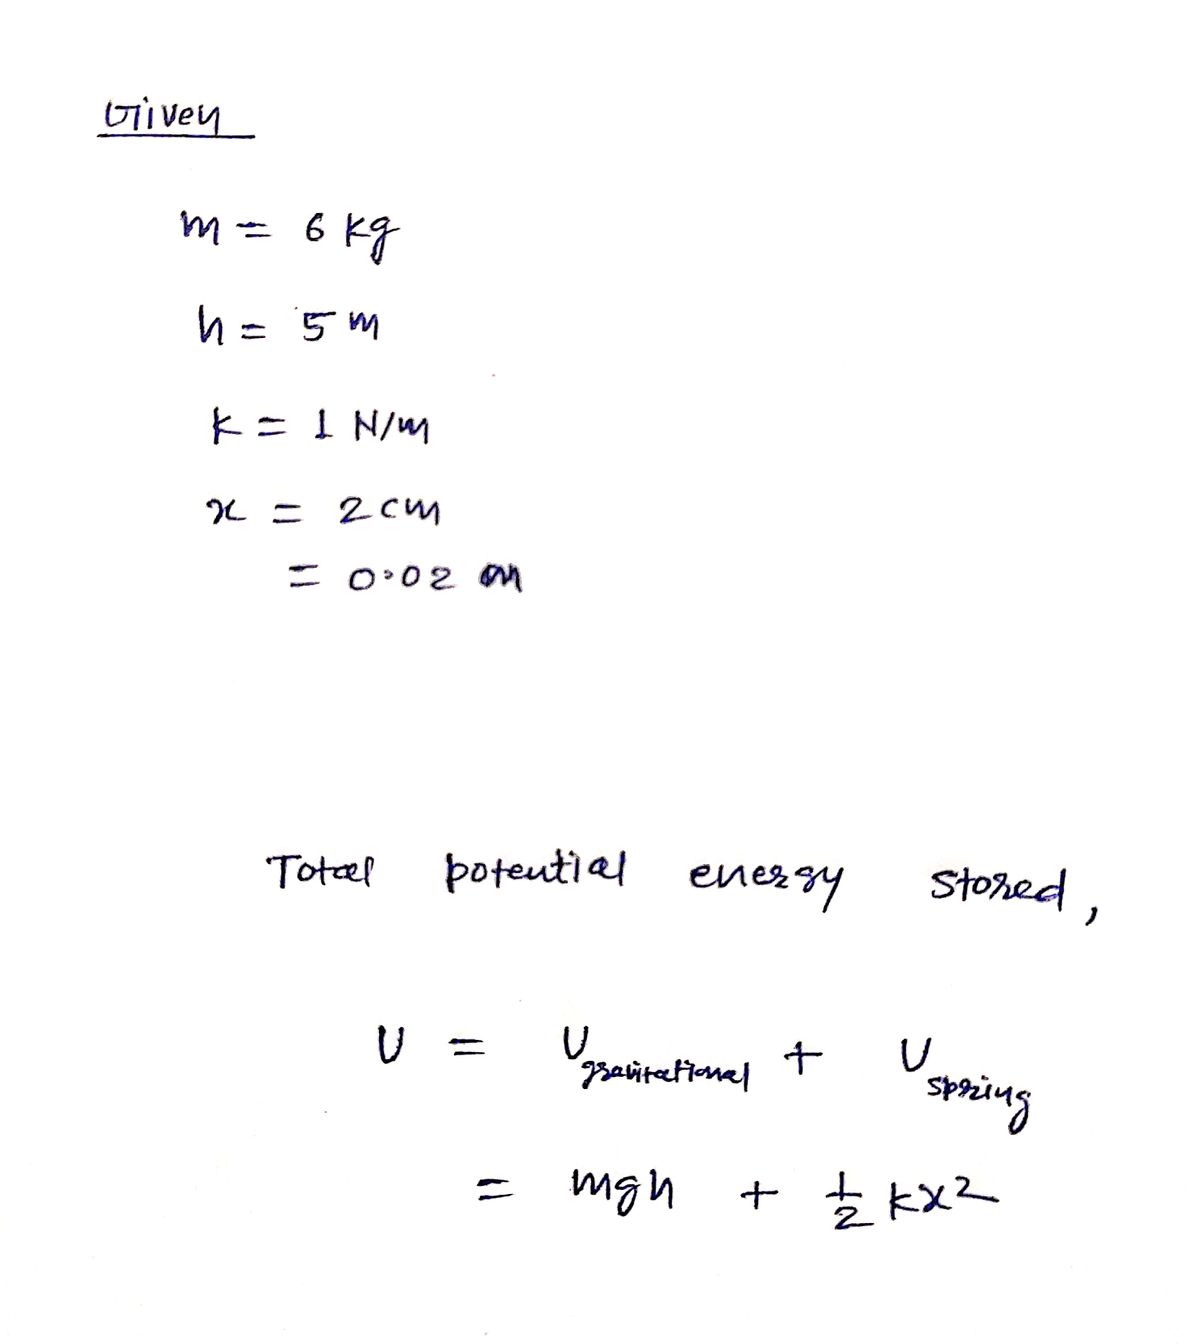 Given
m = 6 kg
h = 5 m
k = 1 N/m
x = 2 cm
= 0.02 m
Total potential energy stored,
U = U gravitational + U spring
= mgh + 1/2 kx²